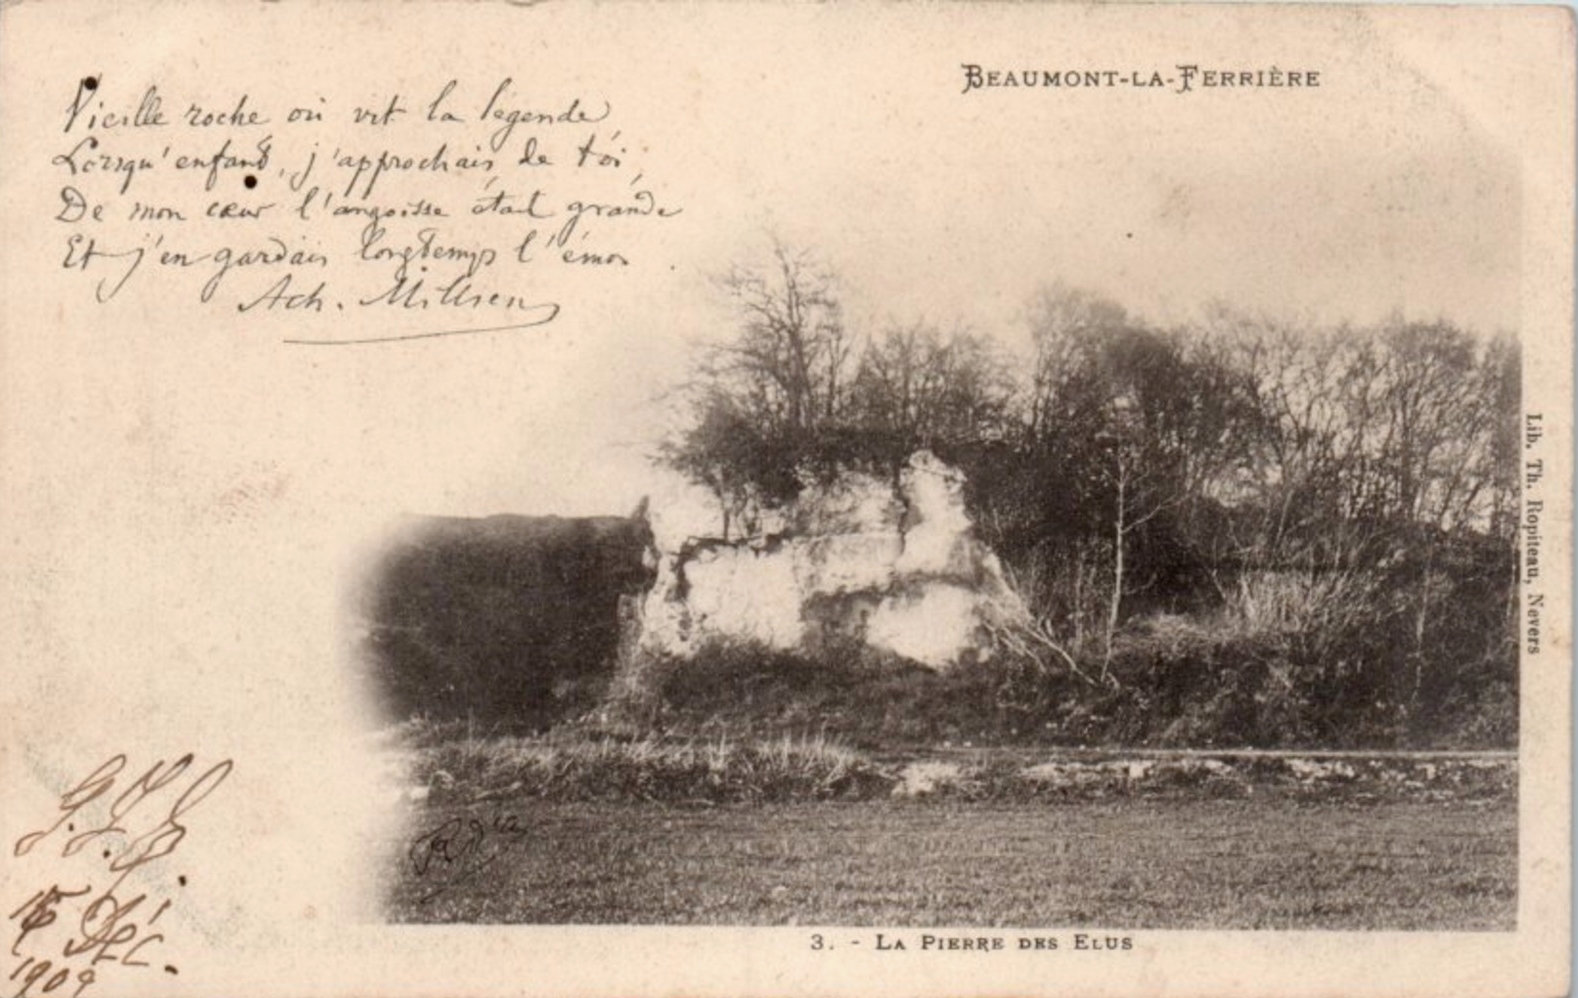 BEAUMONT-LA-FERRIÈRE
Vieille roche où vit la légende
Lorsqu'enfant, j'approchais de toi,
De mon cœur l'angoisse était grande
Et j'en gardais longtemps l'émoi.
Ach. Millien
Lib. Th. Ropiteau, Nevers
15 Déc.
1904
3. - LA PIERRE DES ELUS